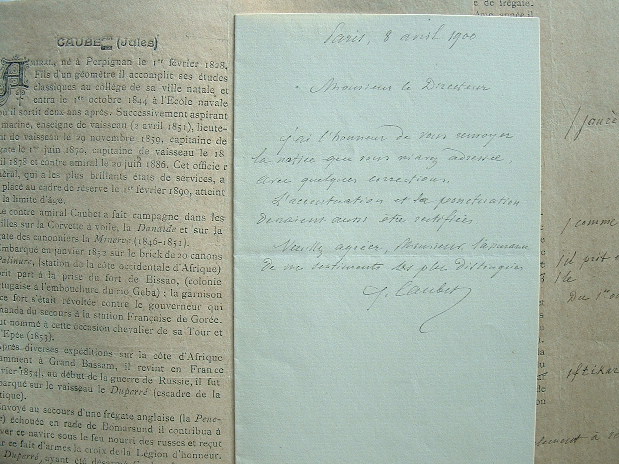 CAUBET (Jules)
AMIRAL, né à Perpignan le 1er février 1828.
Fils d'un géomètre il accomplit ses études
classiques au collège de sa ville natale, et
entra le 1er octobre 1844 à l'Ecole navale
il sortit deux ans après. Successivement aspirant
marine, enseigne de vaisseau (2 avril 1851), lieute-
de vaisseau 29 novembre 1859, capitaine de
le 1er juin 1870, capitaine de vaisseau le 18
1878 et contre amiral le 20 juin 1886. Cet officier
général, qui a les plus brillants états de services, a
placé au cadre de réserve le 1er février 1890, atteint
la limite d'âge.
Le contre amiral Caubet a fait campagne dans les
sur la Corvette à voile, la Danaïde et sur la
gate des canonniers la Minerve (1846-1851).
Embarqué en janvier 1852 sur le brick de 20 canons
Palinure, (station de la côte occidentale d'Afrique)
prit part à la prise du fort de Bissao, (colonie
tugaise à l'embouchure du rio Geba) ; la garnison
ce fort s'était révoltée contre le gouverneur qui
manda du secours à la station Française de Gorée.
nommé à cette occasion chevalier de sa Tour et
Epée (1853).
Après diverses expéditions sur la côte d'Afrique
amment à Grand Bassam, il revint en France
vrier 1854), au début de la guerre de Russie, il fut
barqué sur le vaisseau le Duperré (escadre de la
tique).
Envoyé au secours d'une frégate anglaise (la Pene-
échouée en rade de Bomarsund il contribua à
ver ce navire sous le feu nourri des russes et reçut
ce fait d'armes la croix de la Légion d'honneur.
Duperré, ayant été
Paris, 8 avril 1900
Monsieur le Directeur
J'ai l'honneur de vous renvoyer
la notice que vous m'avez adressée
avec quelques corrections.
L'accentuation et la ponctuation
devraient aussi être rectifiées
Veuillez agréer, Monsieur, l'assurance
de mes sentiments les plus distingués
J. Caubet
de frégate.
/ comme
/ il prit
/ le
Du 1er